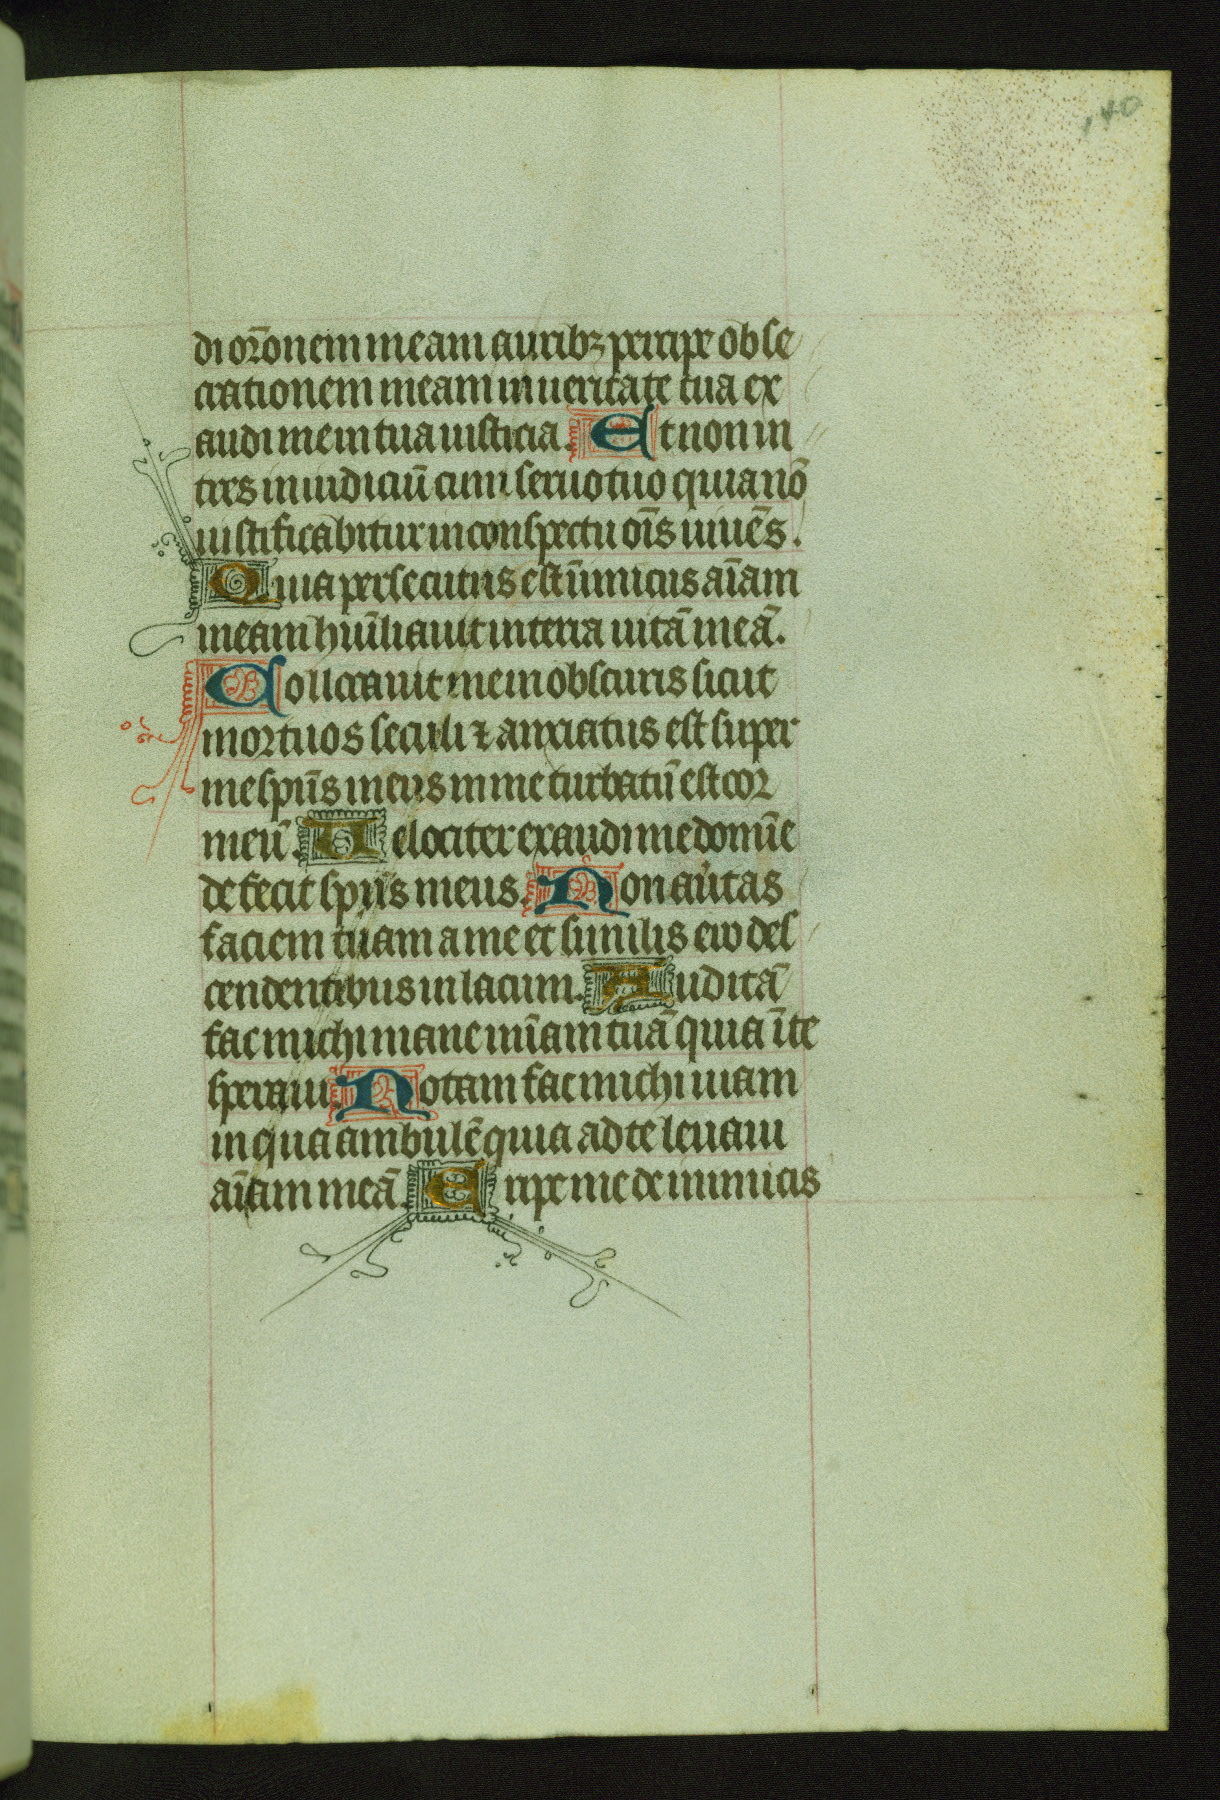 140
di or̄onem meam auribꝫ percipe obse
crationem meam in ueritate tua ex
audi me in tua iusticia. Et non in
tres in iudiciū cum seruo tuo quia nō
iustificabitur in conspectu oīs uiuēs.
Quia persecutus est īnimicus aīam
meam humiliauit in terra uitā meā.
Collocauit me in obscuris sicut
mortuos seculi ⁊ anxiatus est super
me spūs meus in me turbatū est cor
meū. Uelociter exaudi me domīe
defecit spūs meus. Non au᷑tas
faciem tuam a me et similis ero des
cendentibus in lacum. Auditā
fac michi mane mīam tuā quia ī te
speraui. Notam fac michi uiam
in qua ambulē quia ad te leuaui
aīam meā. Eripe me de inimicis